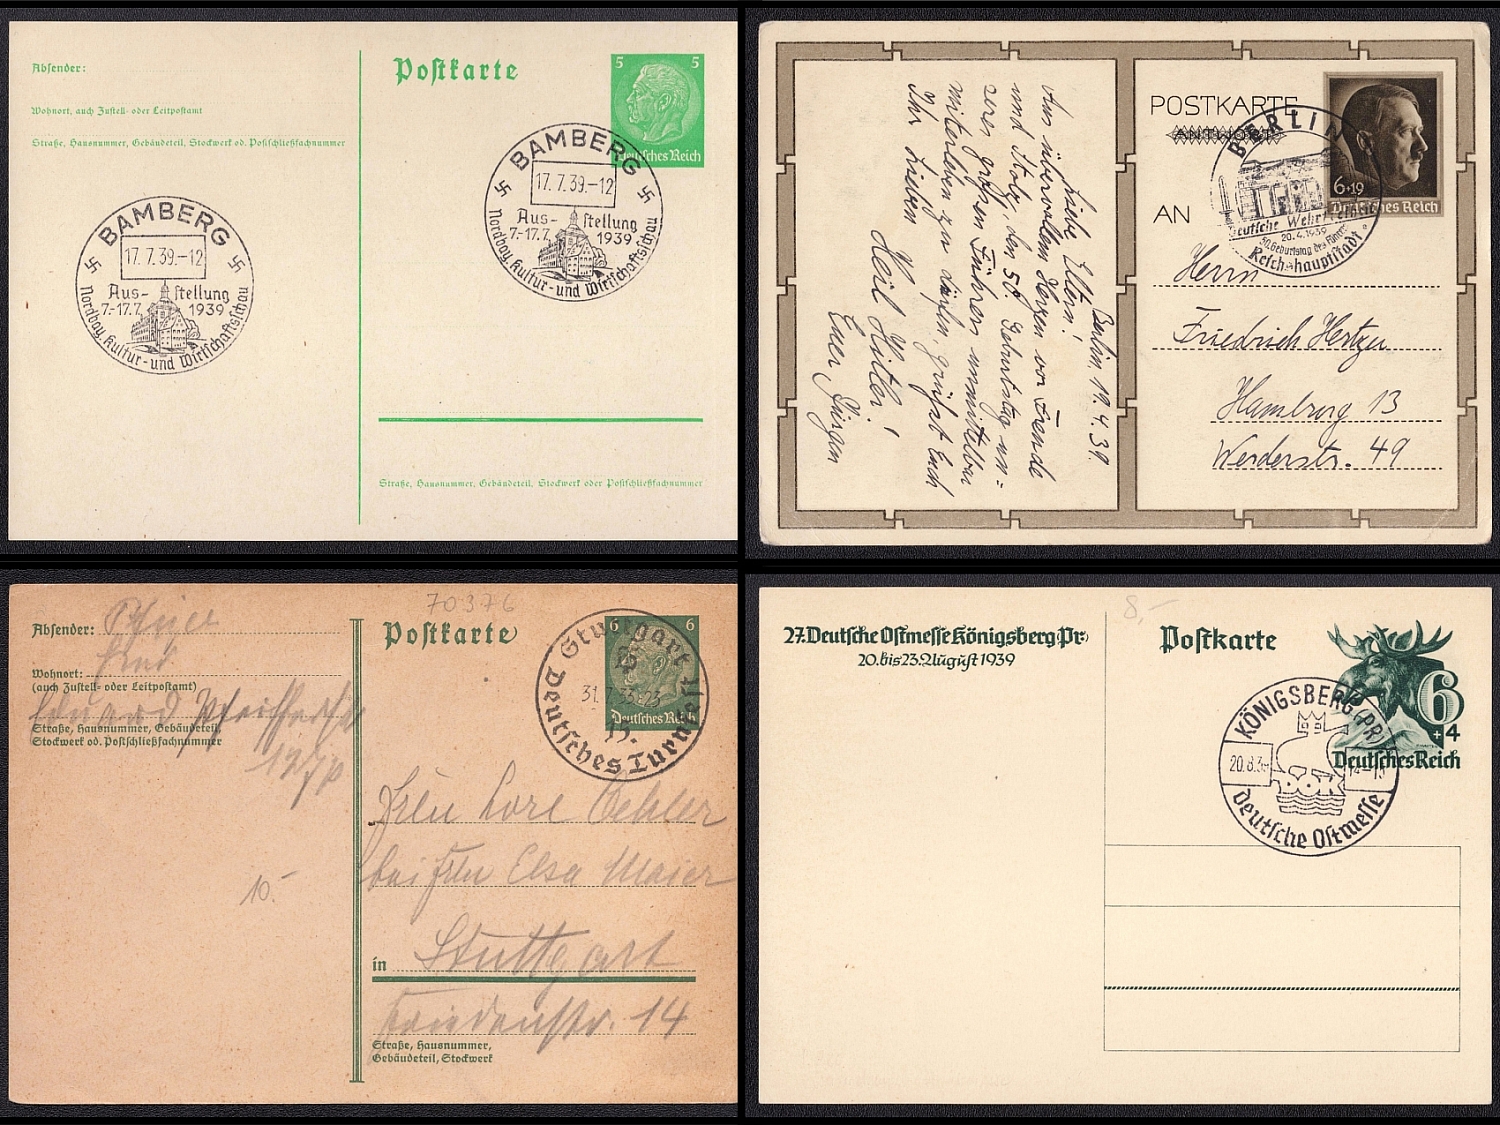 Absender:
Wohnort, auch Zustell- oder Leitpostamt
Straße, Hausnummer, Gebäudeteil, Stockwerk od. Postschließfachnummer
Postkarte
5 5
Deutsches Reich
BAMBERG
17.7.39.-12
Aus-stellung
7.-17.7. 1939
Nordbay. Kultur- und Wirtschaftsschau
BAMBERG
17.7.39.-12
Aus-stellung
7.-17.7. 1939
Nordbay. Kultur- und Wirtschaftsschau
Straße, Hausnummer, Gebäudeteil, Stockwerk oder Postschließfachnummer
Berlin, 19.4.39.
Liebe Eltern!
Aus übervollem Herzen vor Freude
und Stolz, den 50. Geburtstag un-
seres großen Führers unmittelbar
miterleben zu dürfen, grüßt Euch
Ihr Lieben
Heil Hitler!
Euer Jürgen
POSTKARTE
ANTWORT
6+19
Deutsches Reich
BERLIN
20.4.1939
50. Geburtstag des Führers
Reichshauptstadt
AN
Herrn
Friedrich Hertzer
Hamburg 13
Werderstr. 49
70376
Absender:
Wohnort:
(auch Zustell- oder Leitpostamt)
Straße, Hausnummer, Gebäudeteil,
Stockwerk od. Postschließfachnummer
10.-
Postkarte
6 6
Deutsches Reich
Stuttgart
31.7.33.-23
15.
Deutsches Turnfest
Frln Lore Oehler
bei Frln Elsa Maier
in Stuttgart
Friedenstr. 14
Straße, Hausnummer,
Gebäudeteil, Stockwerk
8,-
27. Deutsche Ostmesse Königsberg (Pr)
20. bis 23. August 1939
Postkarte
6
+4
Deutsches Reich
KÖNIGSBERG (PR)
20.8.39
DOK
Deutsche Ostmesse